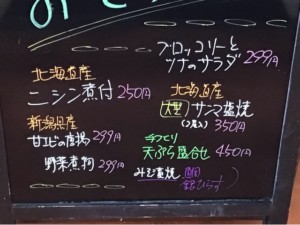 ブロッコリーと
ツナのサラダ 299円
北海道産
ニシン煮付 250円
新潟県産
甘エビの唐揚 299円
野菜煮物 299円
北海道産
大型 サンマ塩焼
(2尾入) 350円
手づくり
天ぷら盛合せ 450円
みそ漬焼
銀ひらす